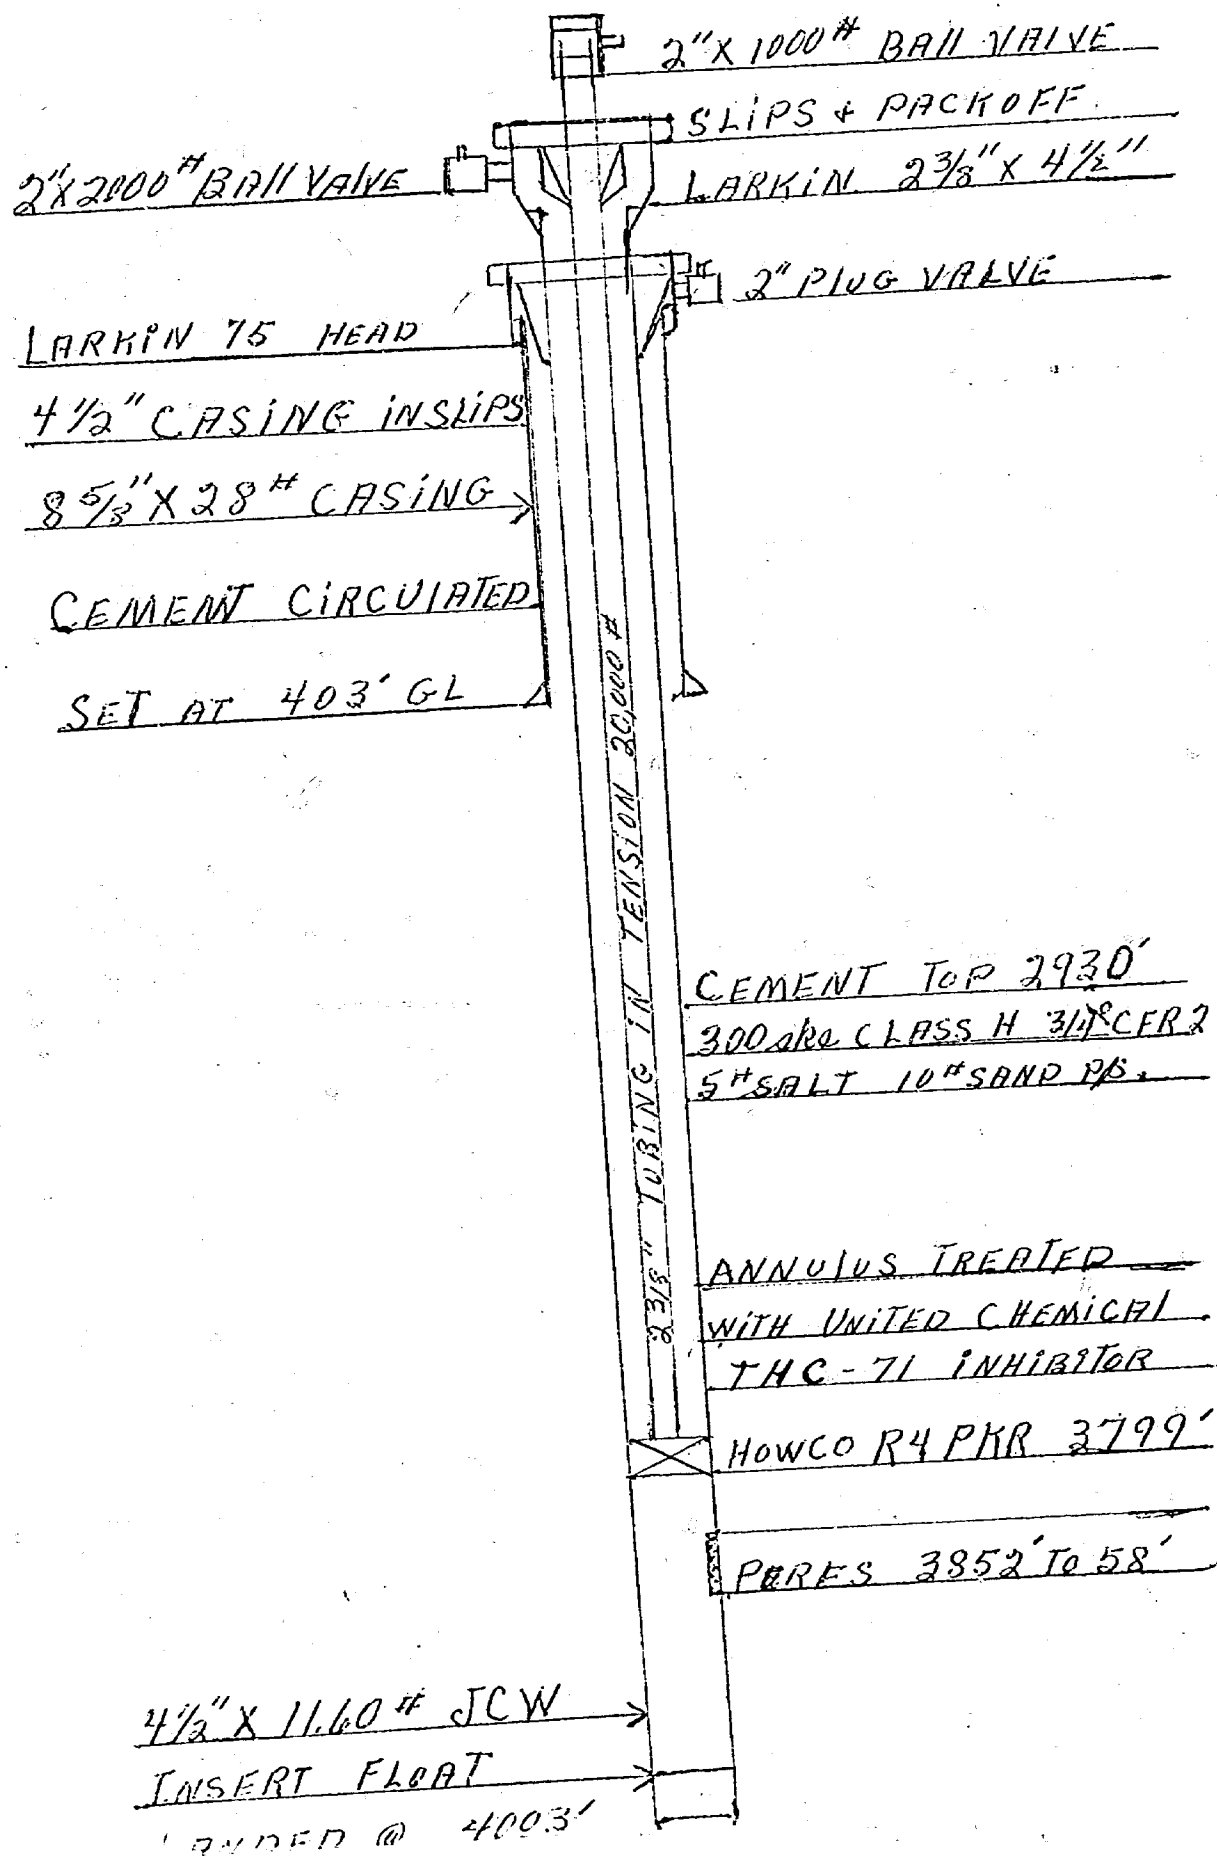 2" X 1000# BAll VALVE
SLIPS & PACKOFF
2" X 2000# BAll VALVE
LARKIN 2 3/8" X 4 1/2"
2" PlUG VALVE
LARKIN 75 HEAD
4 1/2" CASING IN SLIPS
8 5/8" X 28# CASING
CEMENT CIRCULATED
SET AT 403' GL
2 3/8" TUBING IN TENSION 20,000#
CEMENT TOP 2930'
300 sks CLASS H CFR2
5# SALT 10# SAND P/S.
ANNULUS TREATED
WITH UNITED CHEMICAL
THC-71 INHIBITOR
HOWCO R4 PKR 3799'
PERFS 3852' TO 58'
4 1/2" X 11.60# JCW
INSERT FLOAT
@ 4003'